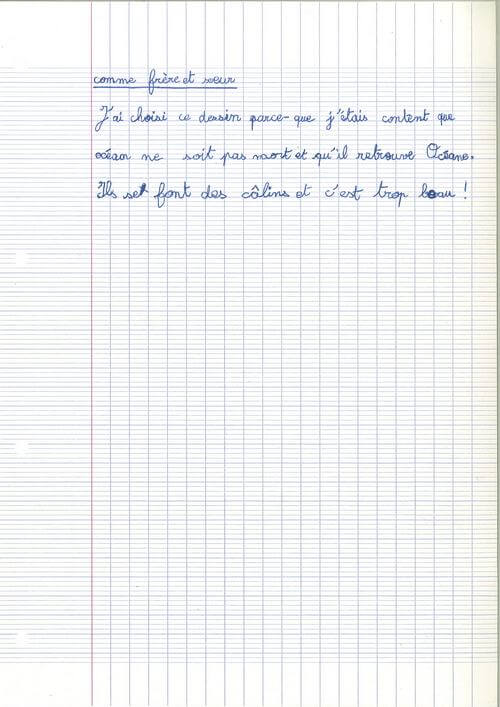 comme frère et sœur
J'ai choisi ce dessin parce-que j'étais content que
océan ne soit pas mort et qu'il retrouve Océane.
Ils se font des câlins et c'est trop beau !